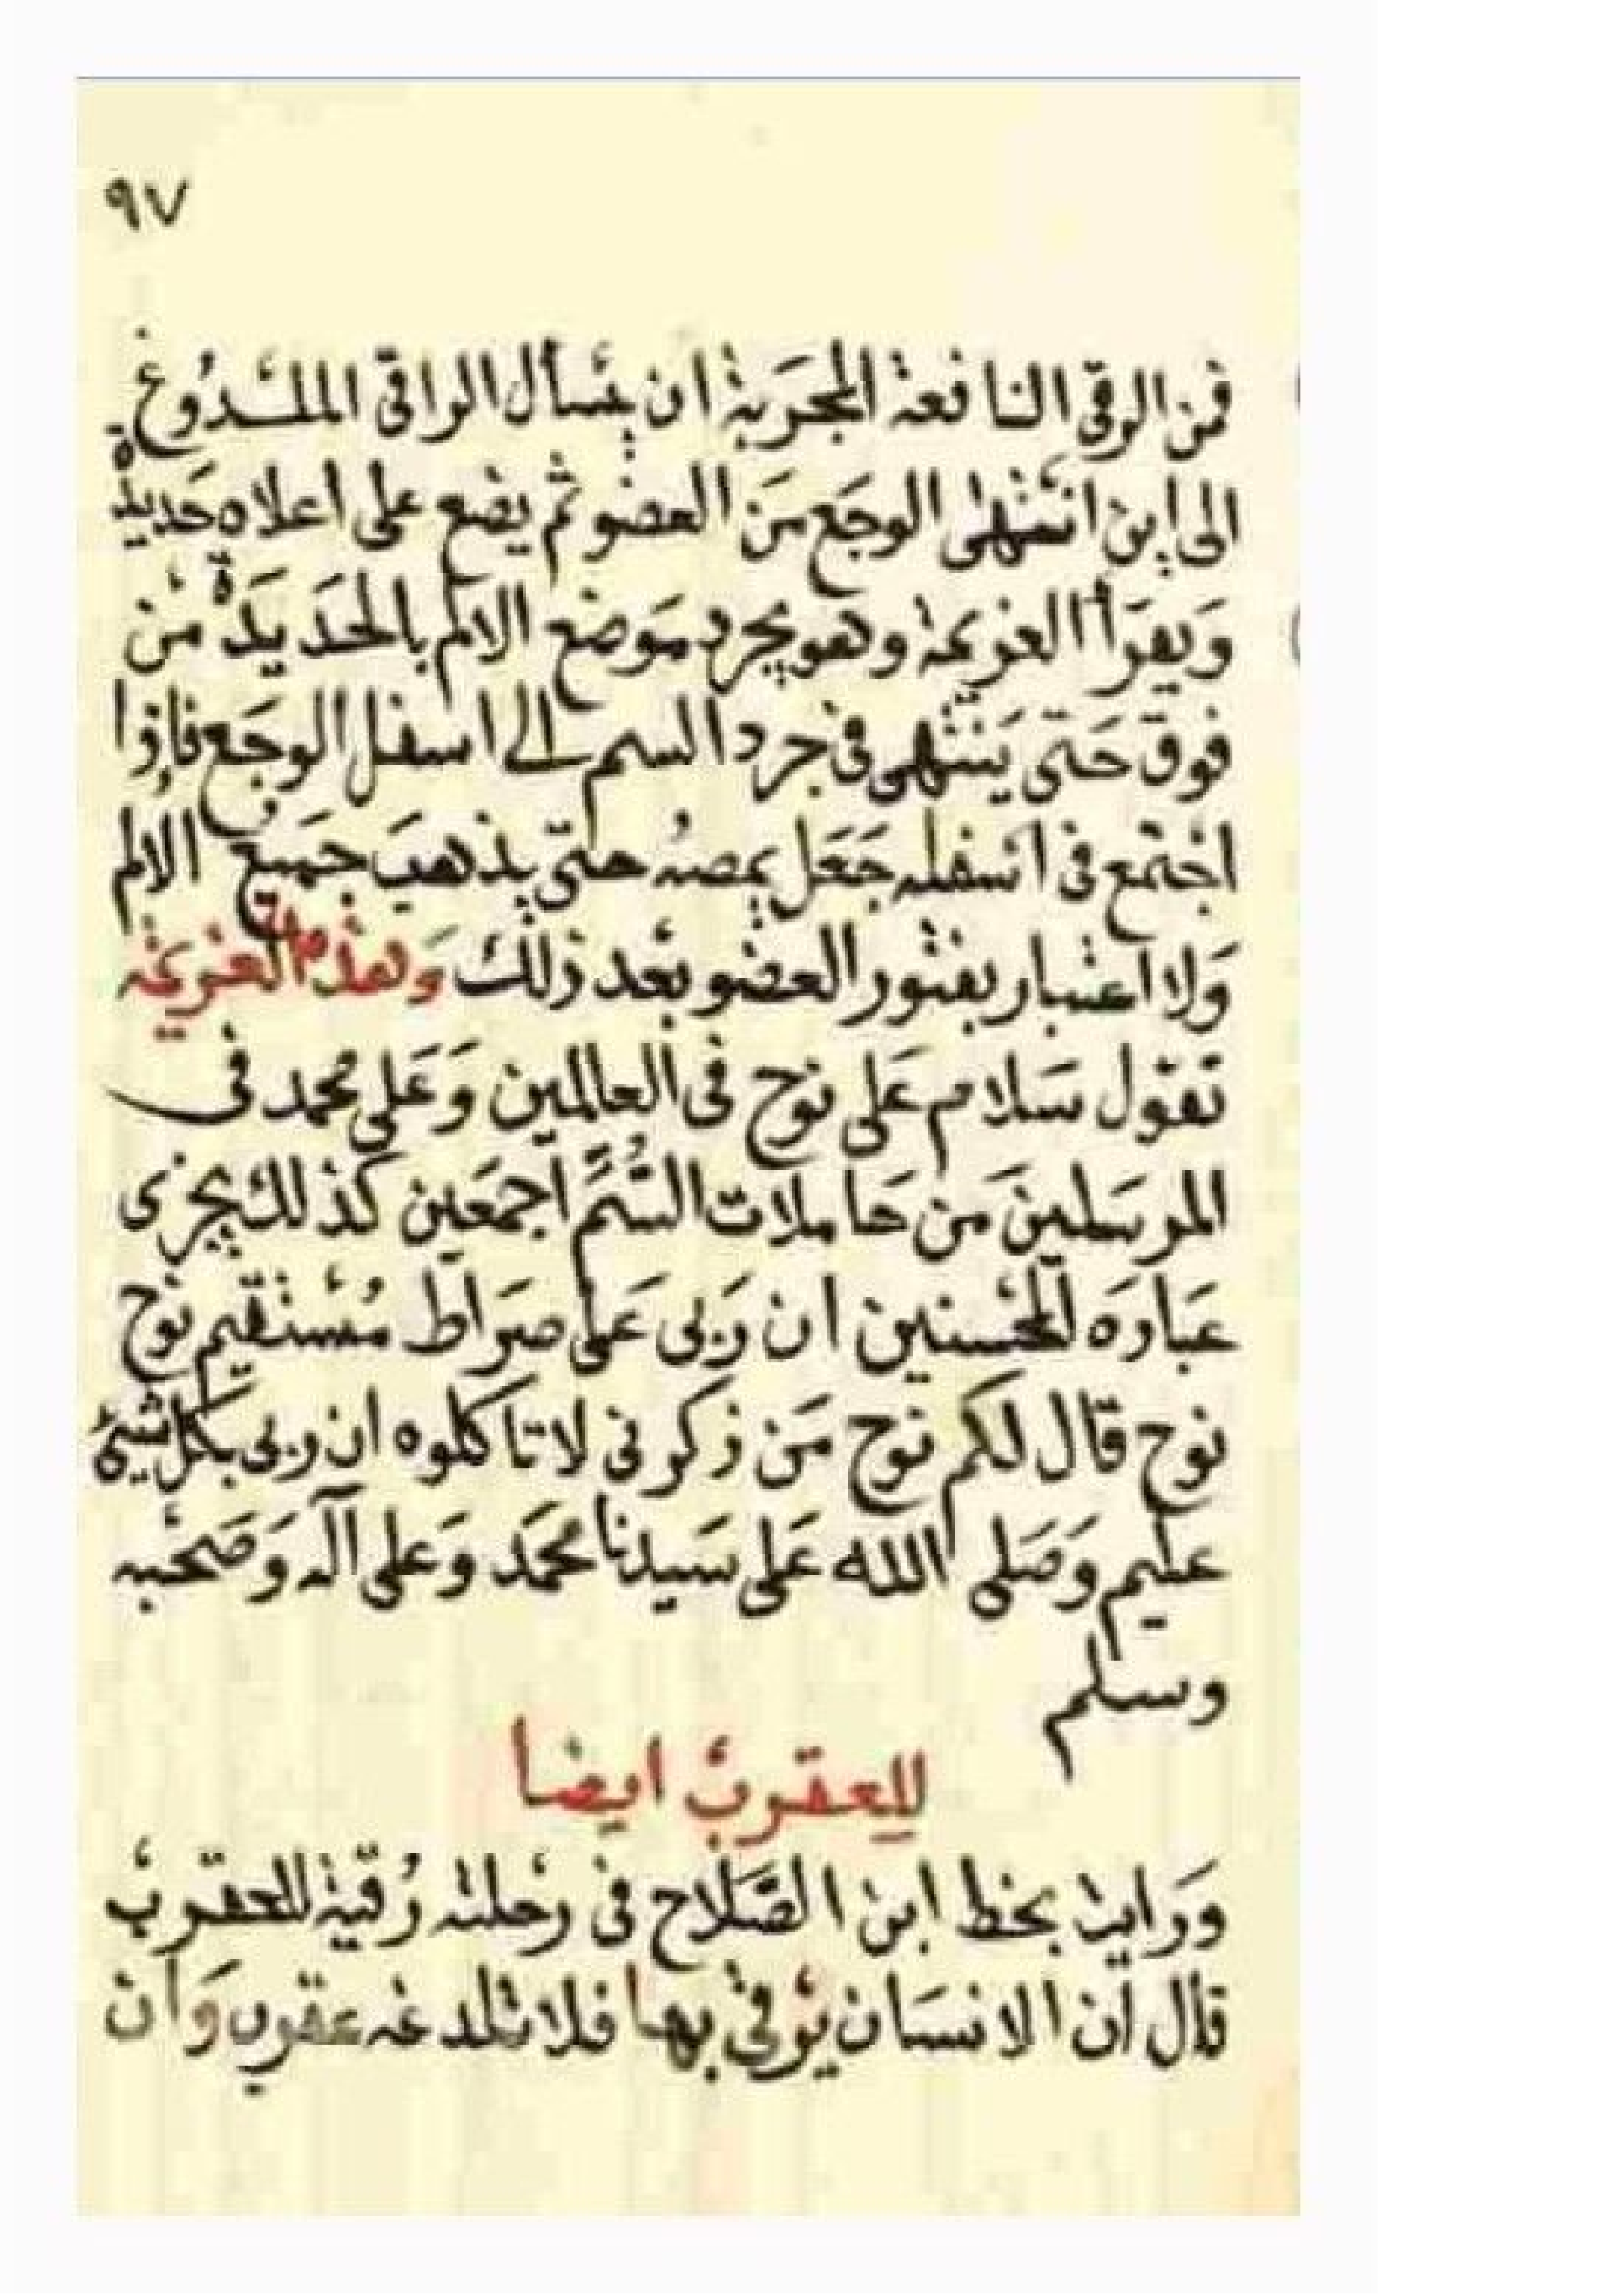 ٩٧
فمن الرقى النافعة المجربة ان يسأل الراقى الملدوغ
الى اين انتهى الوجع من العضو ثم يضع على اعلاه حديدة
ويقرأ العزيمة وهو يجرد موضع الالم بالحديدة من
فوق حتى ينتهى فى جرد السم الى اسفل الوجع فاذا
اجتمع فى اسفله جعل يمصه حتى يذهب جميع الالم
ولا اعتبار بفتور العضو بعد ذلك وهذه العزيمة
تقول سلام على نوح فى العالمين وعلى محمد فى
المرسلين من حاملات السم اجمعين كذلك يجزى
عباده المحسنين ان ربى على صراط مستقيم نوح
نوح قال لكم نوح من ذكرنى لا تاكلوه ان ربى بكل شئ
عليم وصلى الله على سيدنا محمد وعلى آله وصحبه
وسلم
للعقرب ايضا
ورايت بخط ابن الصلاح فى رحلته رقية للعقرب
قال ان الانسان يرقى بها فلا تلدغه عقرب وان